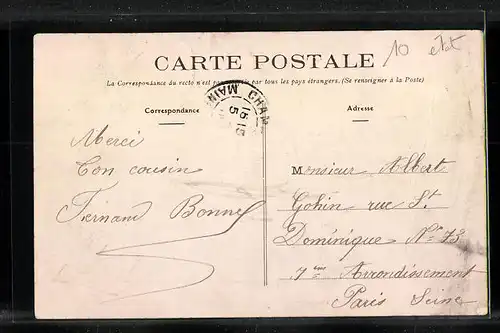 10 état
CARTE POSTALE
La Correspondance du recto n'est pas par tous les pays étrangers. (Se renseigner à la Poste)
CHA
MAIN
16 15
5
Correspondance
Adresse
Merci
Ton cousin
Fernand Bonnel
Monsieur Albert
Gohin rue St
Dominique No 73
7ème Arrondissement
Paris Seine